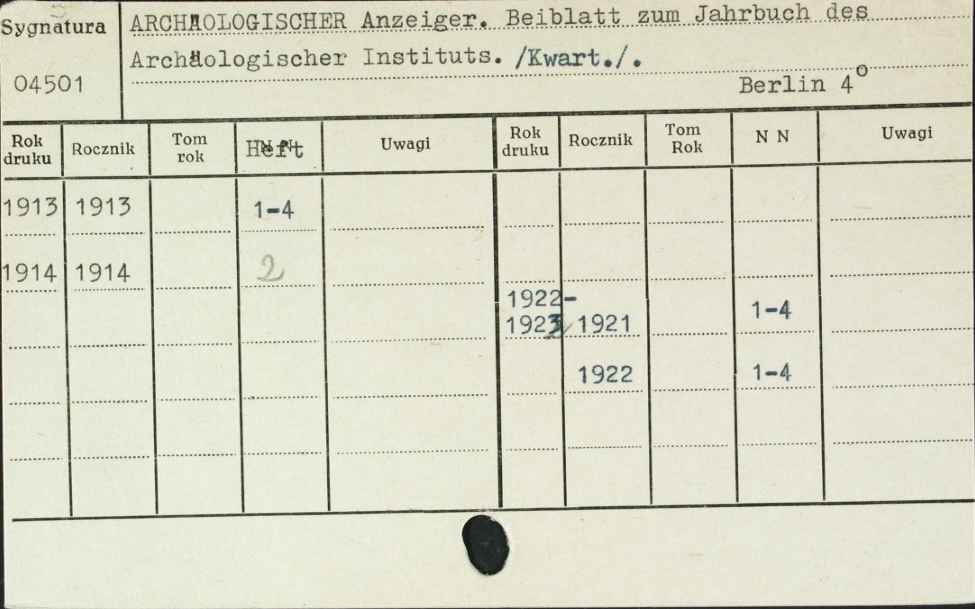 Sygnatura
ARCHÄOLOGISCHER Anzeiger. Beiblatt zum Jahrbuch des
Archäologischer Instituts. /Kwart./.
04501
Berlin 4°
Rok druku Rocznik Tom rok Heft Uwagi Rok druku Rocznik Tom Rok N N Uwagi
1913 1913 1-4
1914 1914 2
1922-
1923 1921 1-4
1922 1-4